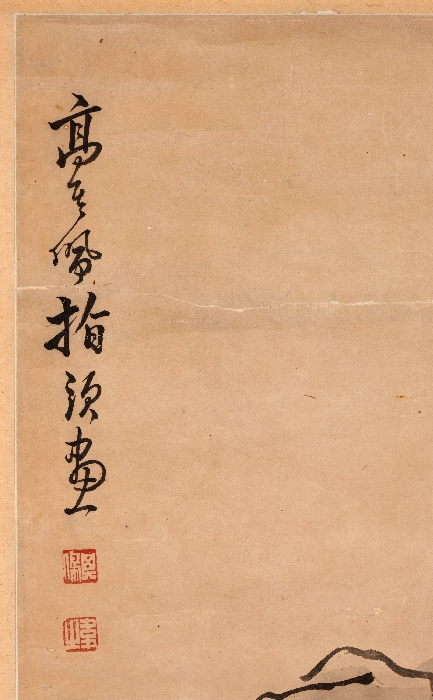 高其佩指頭畫